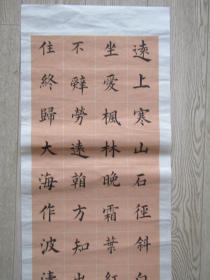 遠上寒山石徑斜白
坐愛楓林晚霜葉紅
不辤勞遠看方知出
住終歸大海作波濤